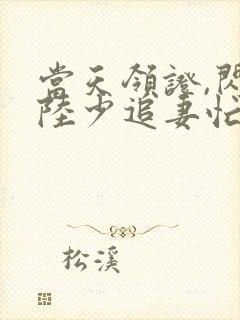 當天領證,閃
陸少追妻忙
松溪